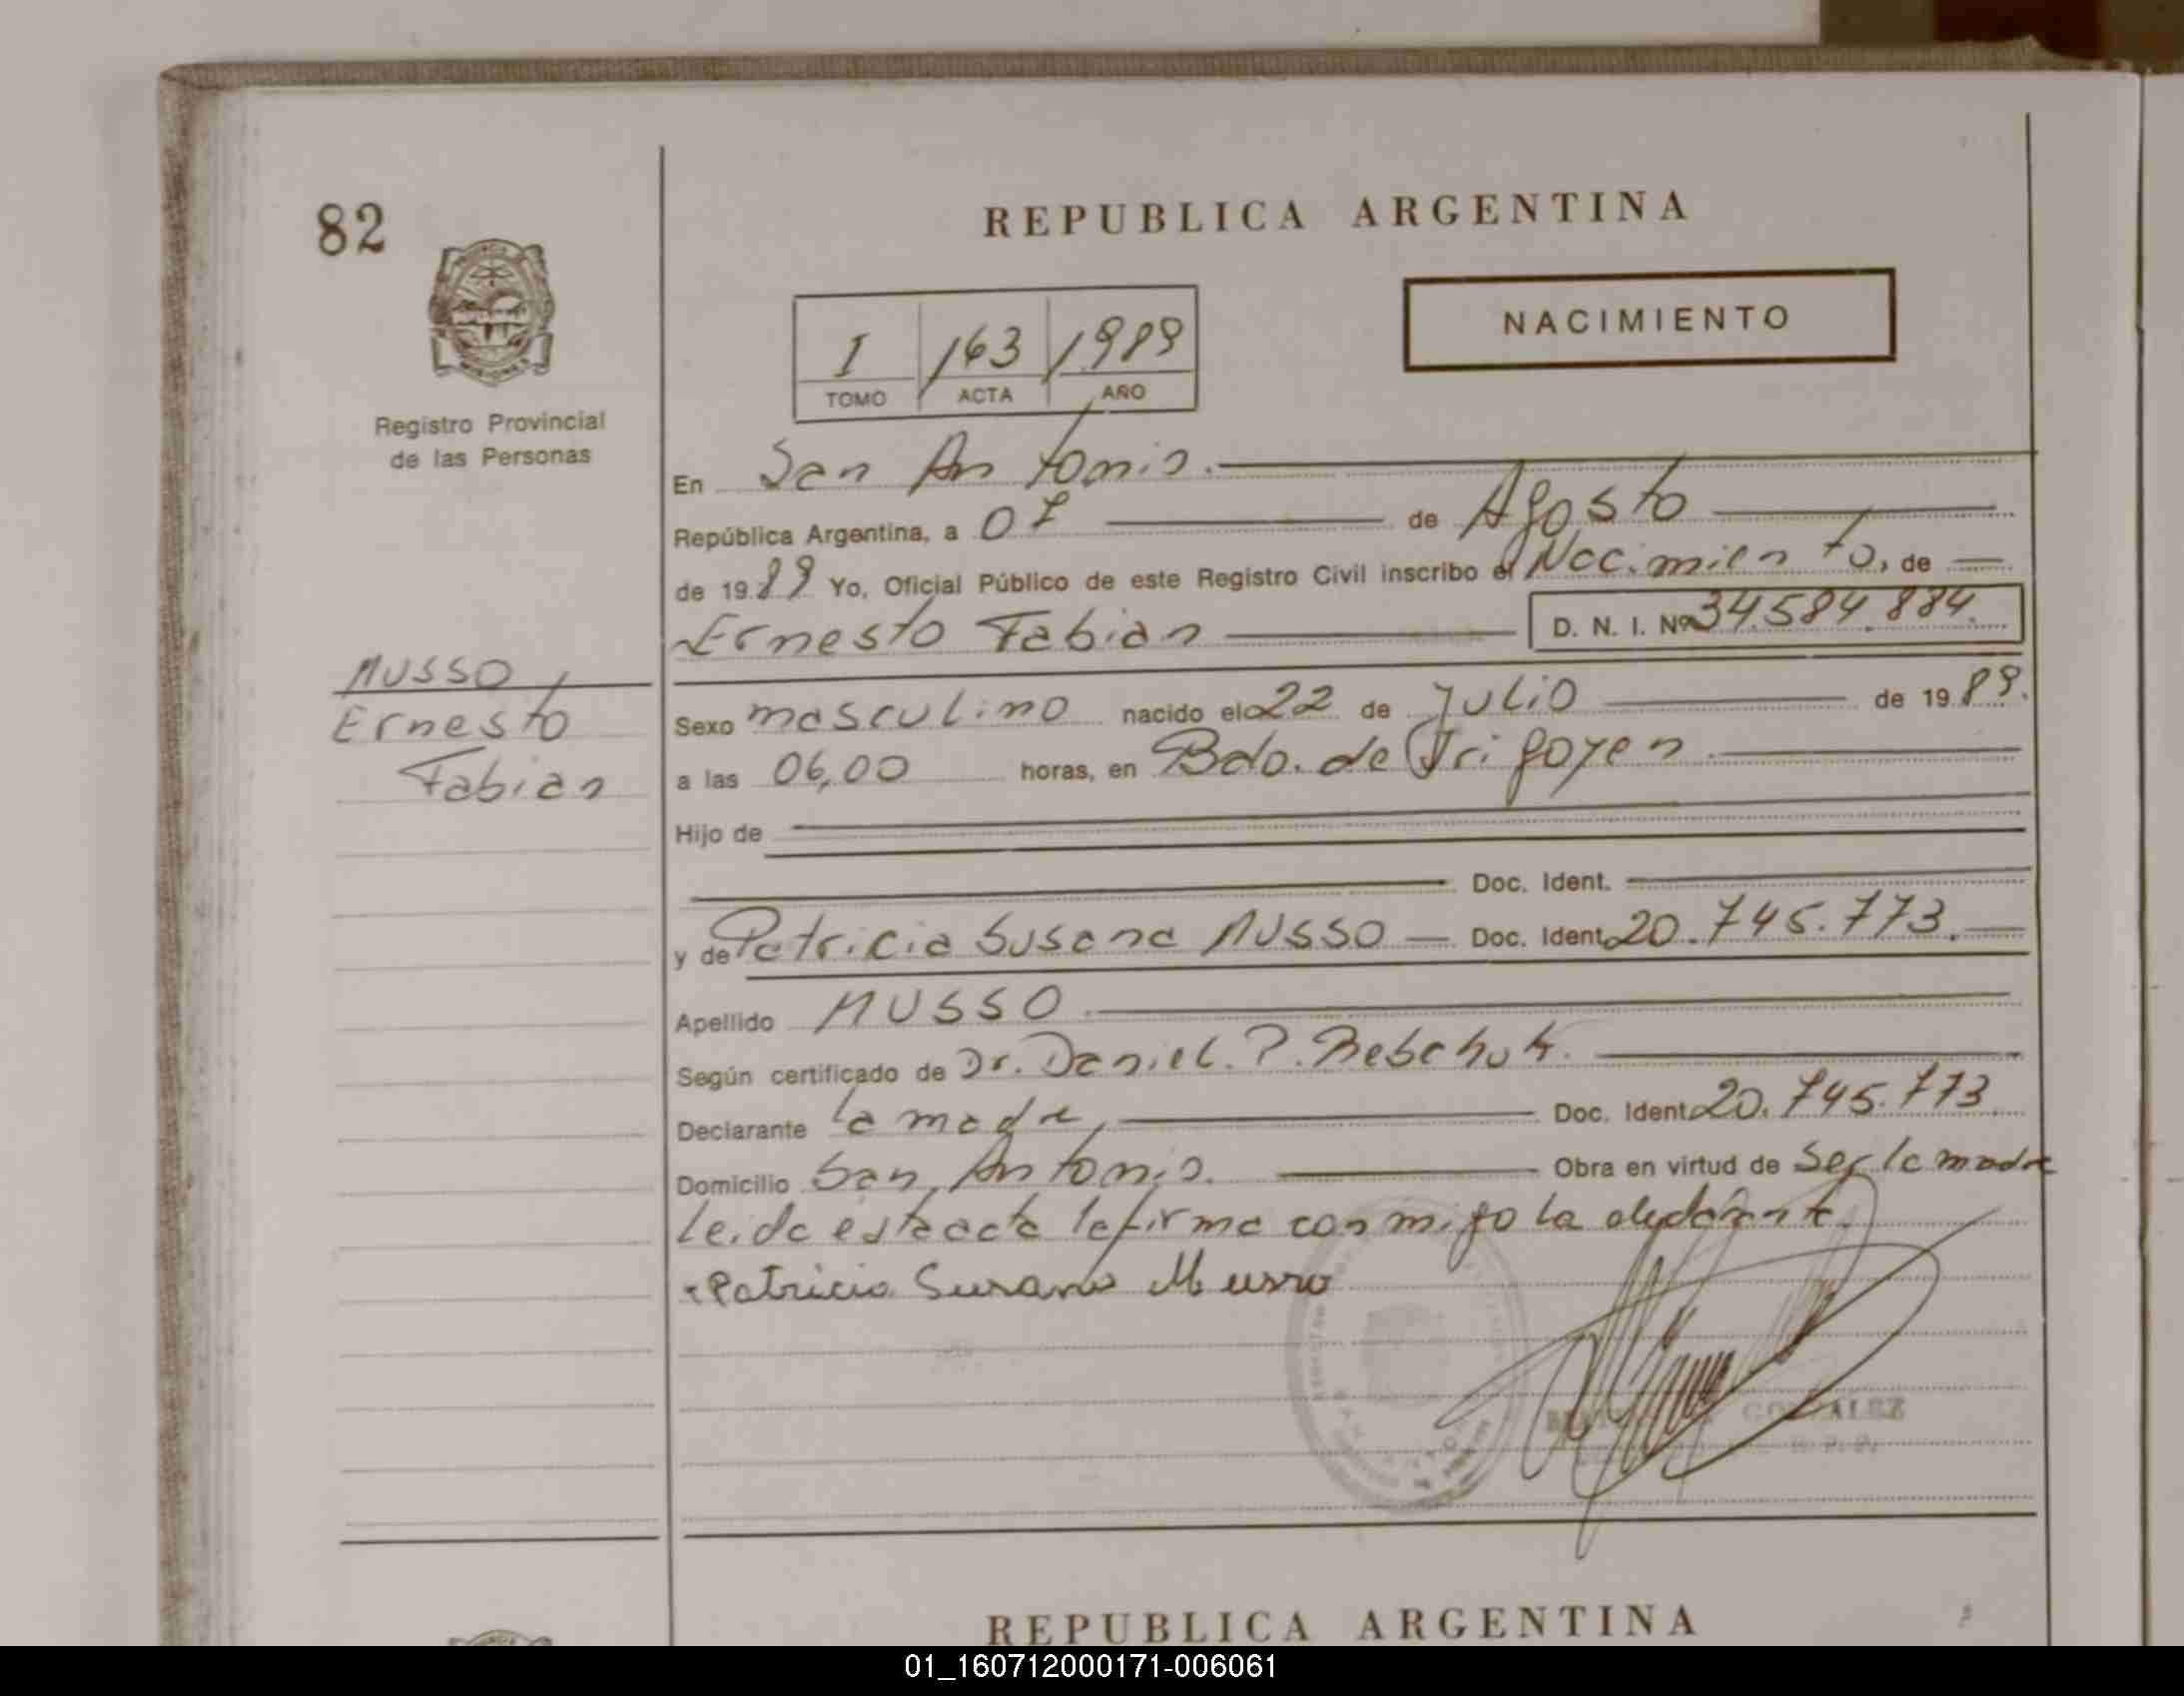 82
REPUBLICA ARGENTINA
NACIMIENTO
I 163 1989
TOMO ACTA AÑO
Registro Provincial
de las Personas
En San Antonio.
República Argentina, a 07 de Agosto
de 1989 Yo, Oficial Público de este Registro Civil inscribo el Nacimiento, de
Ernesto Fabian D. N. I. Nº 34.584.884.
MUSSO,
Ernesto
Fabian
Sexo masculino nacido el 22 de Julio de 1989.
a las 06,00 horas, en Bdo. de Irigoyen
Hijo de
Doc. Ident.
y de Patricia Susana MUSSO Doc. Ident. 20.745.773.
Apellido MUSSO
Según certificado de Dr. Daniel. P.
Declarante la madre, Doc. Ident. 20.745.773
Domicilio San Antonio. Obra en virtud de ser la madre
Leida esta acta la firma conmigo la
Patricia Susana Musso
GONZALEZ
REPUBLICA ARGENTINA
01_160712000171-006061